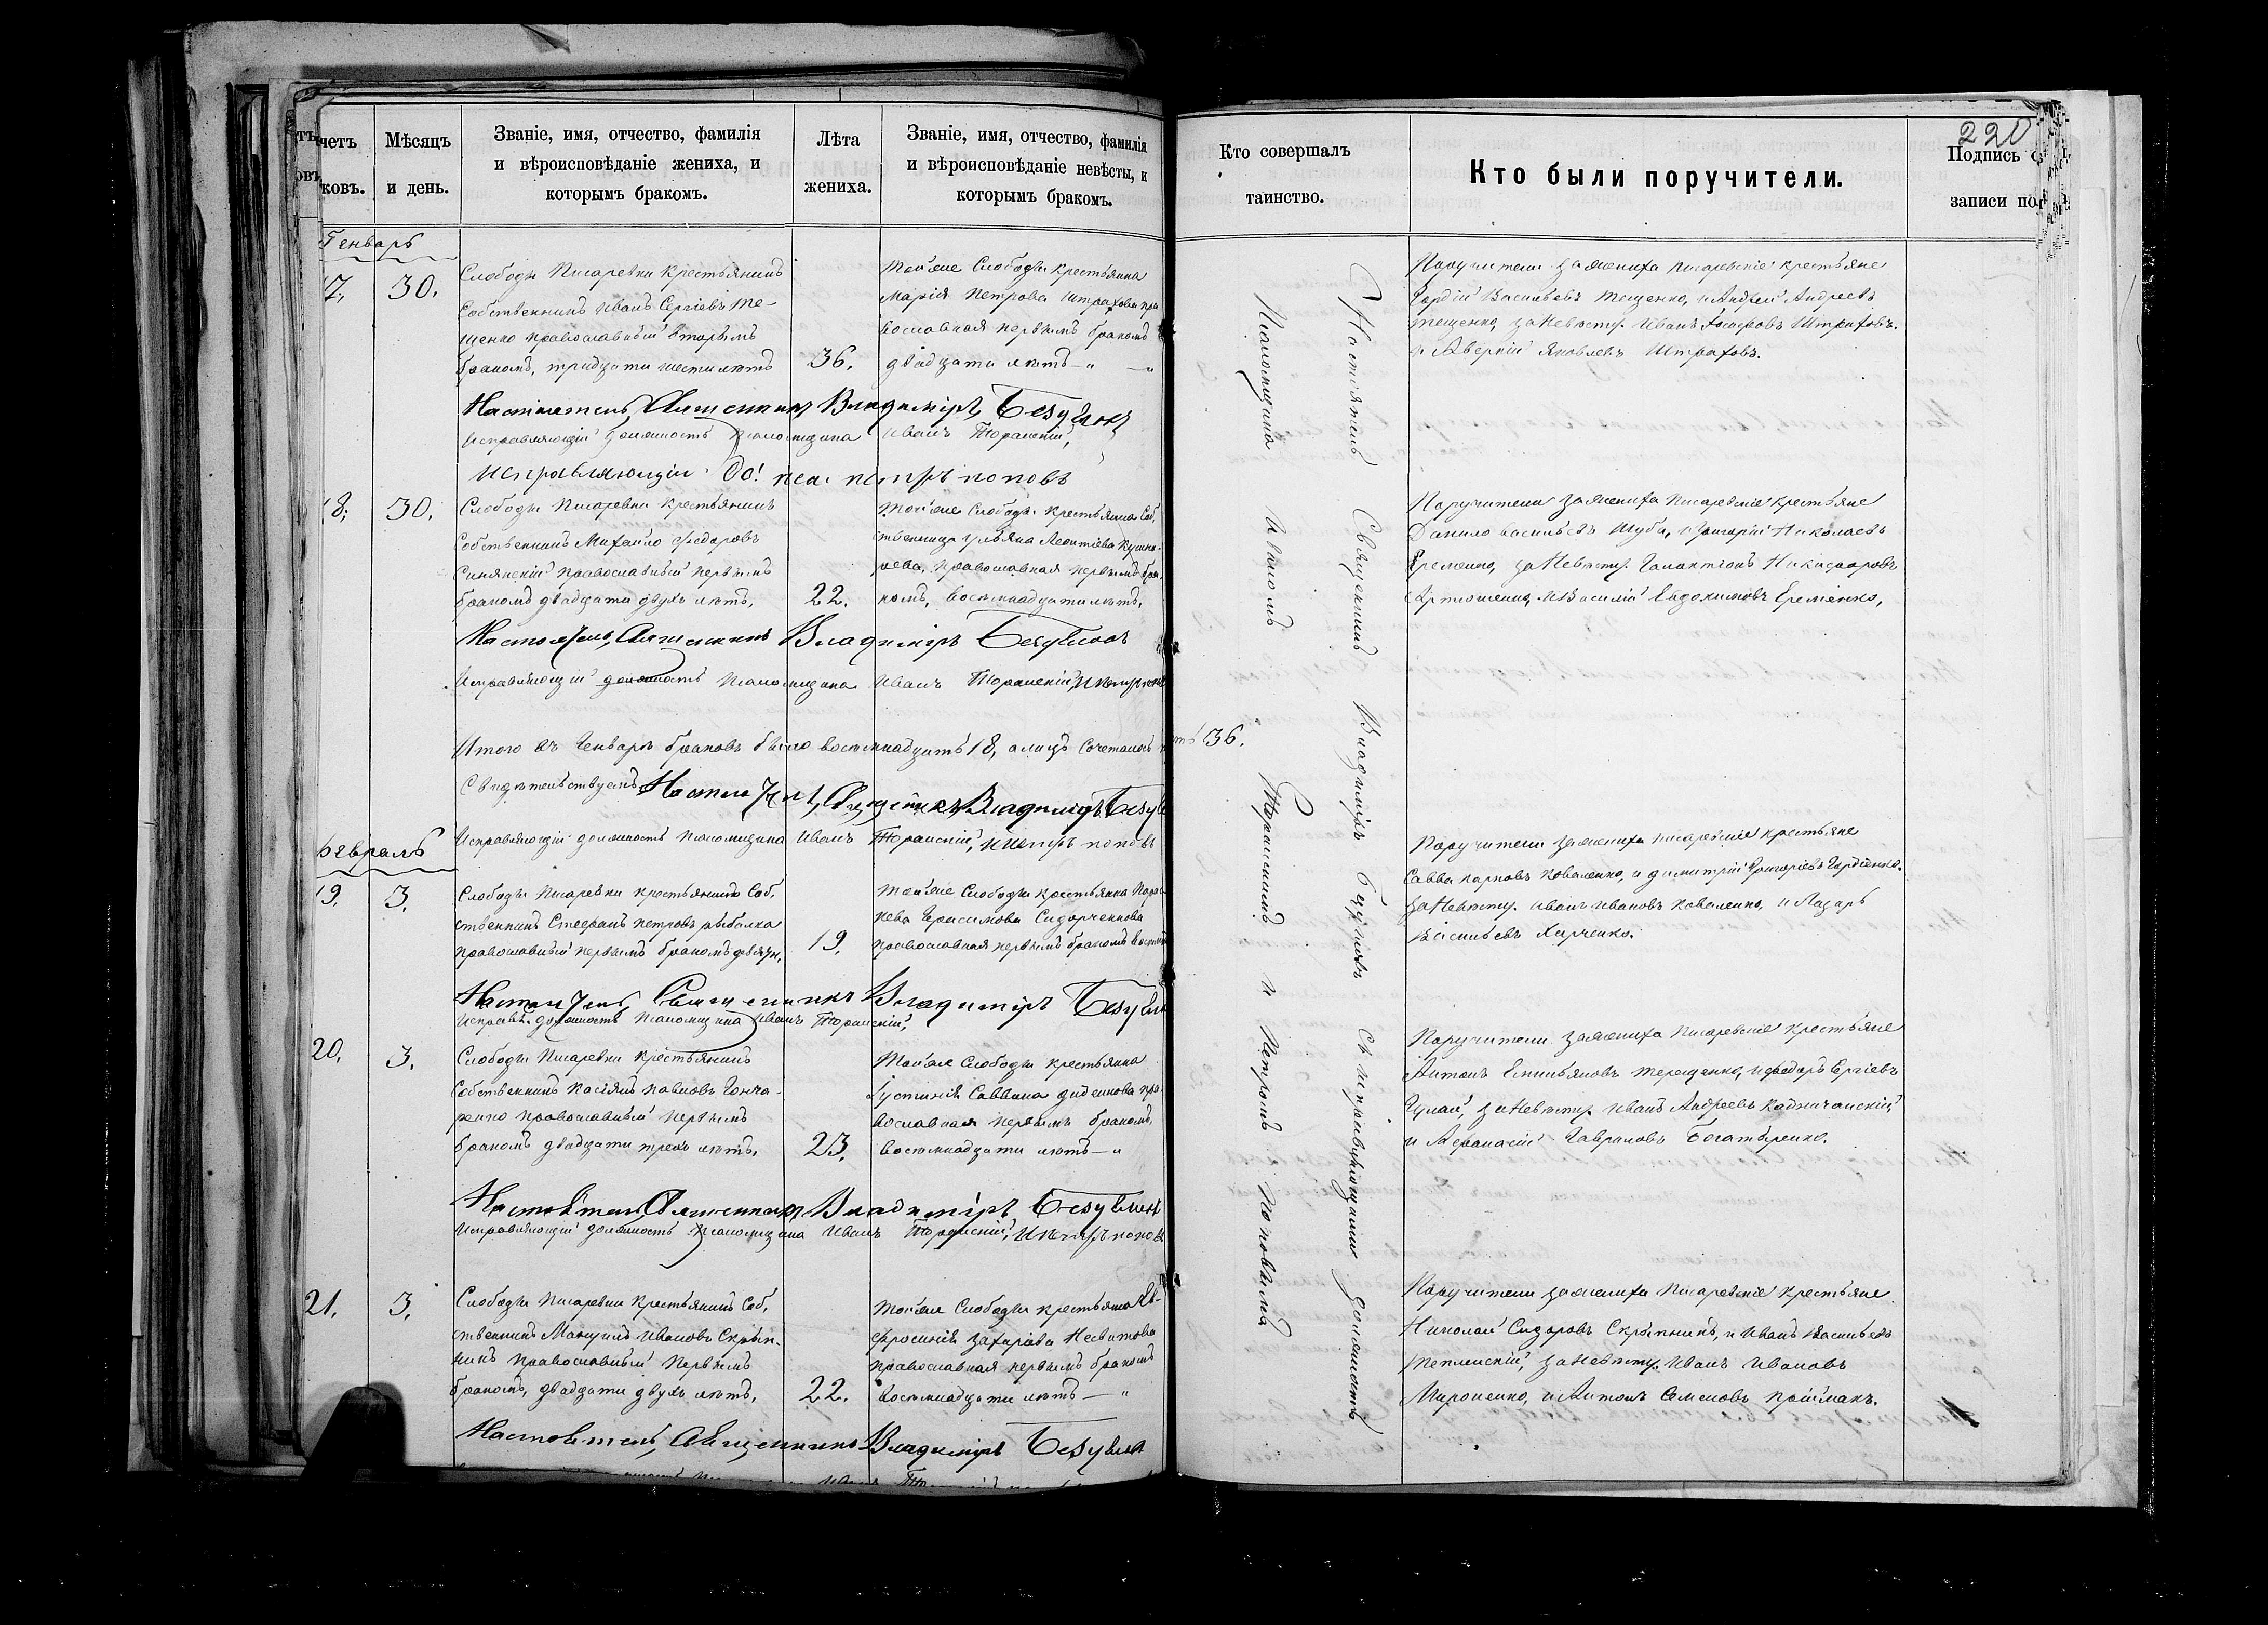 четъ
ковъ.
Мѣсяцъ
и день.
Званіе, имя, отчество, фамилія
и вѣроисповѣданіе жениха, и
которымъ бракомъ.
Лѣта
жениха.
Званіе, имя, отчество, фамилія
и вѣроисповѣданіе невѣсты, и
которымъ бракомъ.
Генварь
17.
30.
Слободы Писаревки крестьянинъ
Собственникъ Иванъ Сергіевъ Те-
щенко православный вторымъ
бракомъ, тридцати шести лѣтъ
36.
Тойже Слободы крестьянка
Марія Петрова Штрахова пра
вославная первымъ бракомъ
двадцати лѣтъ
Настоятель, Священникъ Владиміръ Безуглов
Исправляющій должность псаломщика Иванъ Торанскій,
Исправляющій до: пса: петръ поповъ
18.
30.
Слободы Писаревки крестьянинъ
Собственникъ Михайло Федоровъ
Синянскій православный первымъ
бракомъ двадцати двухъ лѣтъ,
22.
Тойже Слободы крестьянка Соб,
ственница Ульяна Леонтіева
православная первымъ бра-
комъ, восемнадцати лѣтъ,
Настоятель, Священникъ Владиміръ Безуглов
Исправляющій должность псаломщика Иванъ Торанскій, и петръ
Итого въ Генварѣ браковъ было восемнадцать 18, а лицъ сочеталось
Свидѣтельствуемъ Настоятель, Священникъ Владиміръ Безуг
Исправляющій должность псаломщика Иванъ Торанскій, и петръ поповъ
Февраль
19.
3.
Слободы Писаревки крестьянинъ Соб,
ственникъ Стефанъ Петровъ рыбалка
православный первымъ бракомъ девятн,
19.
Тойже Слободы крестьянка Пара-
кева Герасимова Сидорченкова
православная первымъ бракомъ
Настоятель, Священникъ Владиміръ Безугл
Исправл. должность псаломщика Иванъ Торанскій,
20.
3.
Слободы Писаревки крестьянинъ
Собственникъ Касіянъ Павловъ Гонча-
ренко православный первымъ
бракомъ двадцати трехъ лѣтъ,
23.
Тойже Слободы крестьянка
Іустинія Саввина Диденкова пра-
вославная первымъ бракомъ,
восемнадцати лѣтъ
Настоятель, Священникъ Владиміръ Безуглов
Исправляющій должность псаломщика Иванъ Торанскій, и петръ попов
21.
3.
Слободы Писаревки крестьянинъ Соб,
ственникъ Мануилъ Ивановъ Скрып-
никъ православный первымъ
бракомъ, двадцати двухъ лѣтъ,
22.
Тойже Слободы крестьянка Ев-
фросинія Захаріева
православная первымъ бракомъ
восемнадцати лѣтъ
Настоятель, Священникъ Владиміръ Безуглов
220
Кто совершалъ
таинство.
Кто были поручители.
Подпись
записи по
Настоятель Священникъ Владиміръ Безугловъ съ исправляющими должность
Псаломщика Иваномъ Торанскимъ и Петромъ Поповымъ
36.
Поручители за жениха Писаревскіе крестьяне
Гордій Васильевъ Тещенко, и Андрей Андреевъ
Тещенко, за невѣсту. Иванъ Штраховъ.
и Аверкій Яковлевъ Штраховъ.
Поручители за жениха Писаревскіе крестьяне
Данило васильевъ Шуба, и Григорій Николаевъ
Еременко, за невѣсту. Галактіонъ Никифоровъ
Артюшенко, и Василій Евдокимовъ Еременко,
Поручители за жениха писаревскіе крестьяне
Савва карповъ Коваленко, и Димитрій Григоріевъ Гордіенко.
за невѣсту. Иванъ Ивановъ Коваленко, и Лазарь
Васильевъ Харченко.
Поручители за жениха Писаревскіе крестьяне
Антонъ Емильяновъ Терещенко, и федоръ Сергіевъ
Гулай, за невѣсту. Иванъ Андреевъ
и Афанасій Гавриловъ Богатыренко.
Поручители за жениха Писаревскіе крестьяне
Николай Сидоровъ Скрыпникъ, и Иванъ Васильевъ
Теплинскій, за невѣсту. Иванъ Ивановъ
Мироненко, и Антонъ Семеновъ Приймакъ.